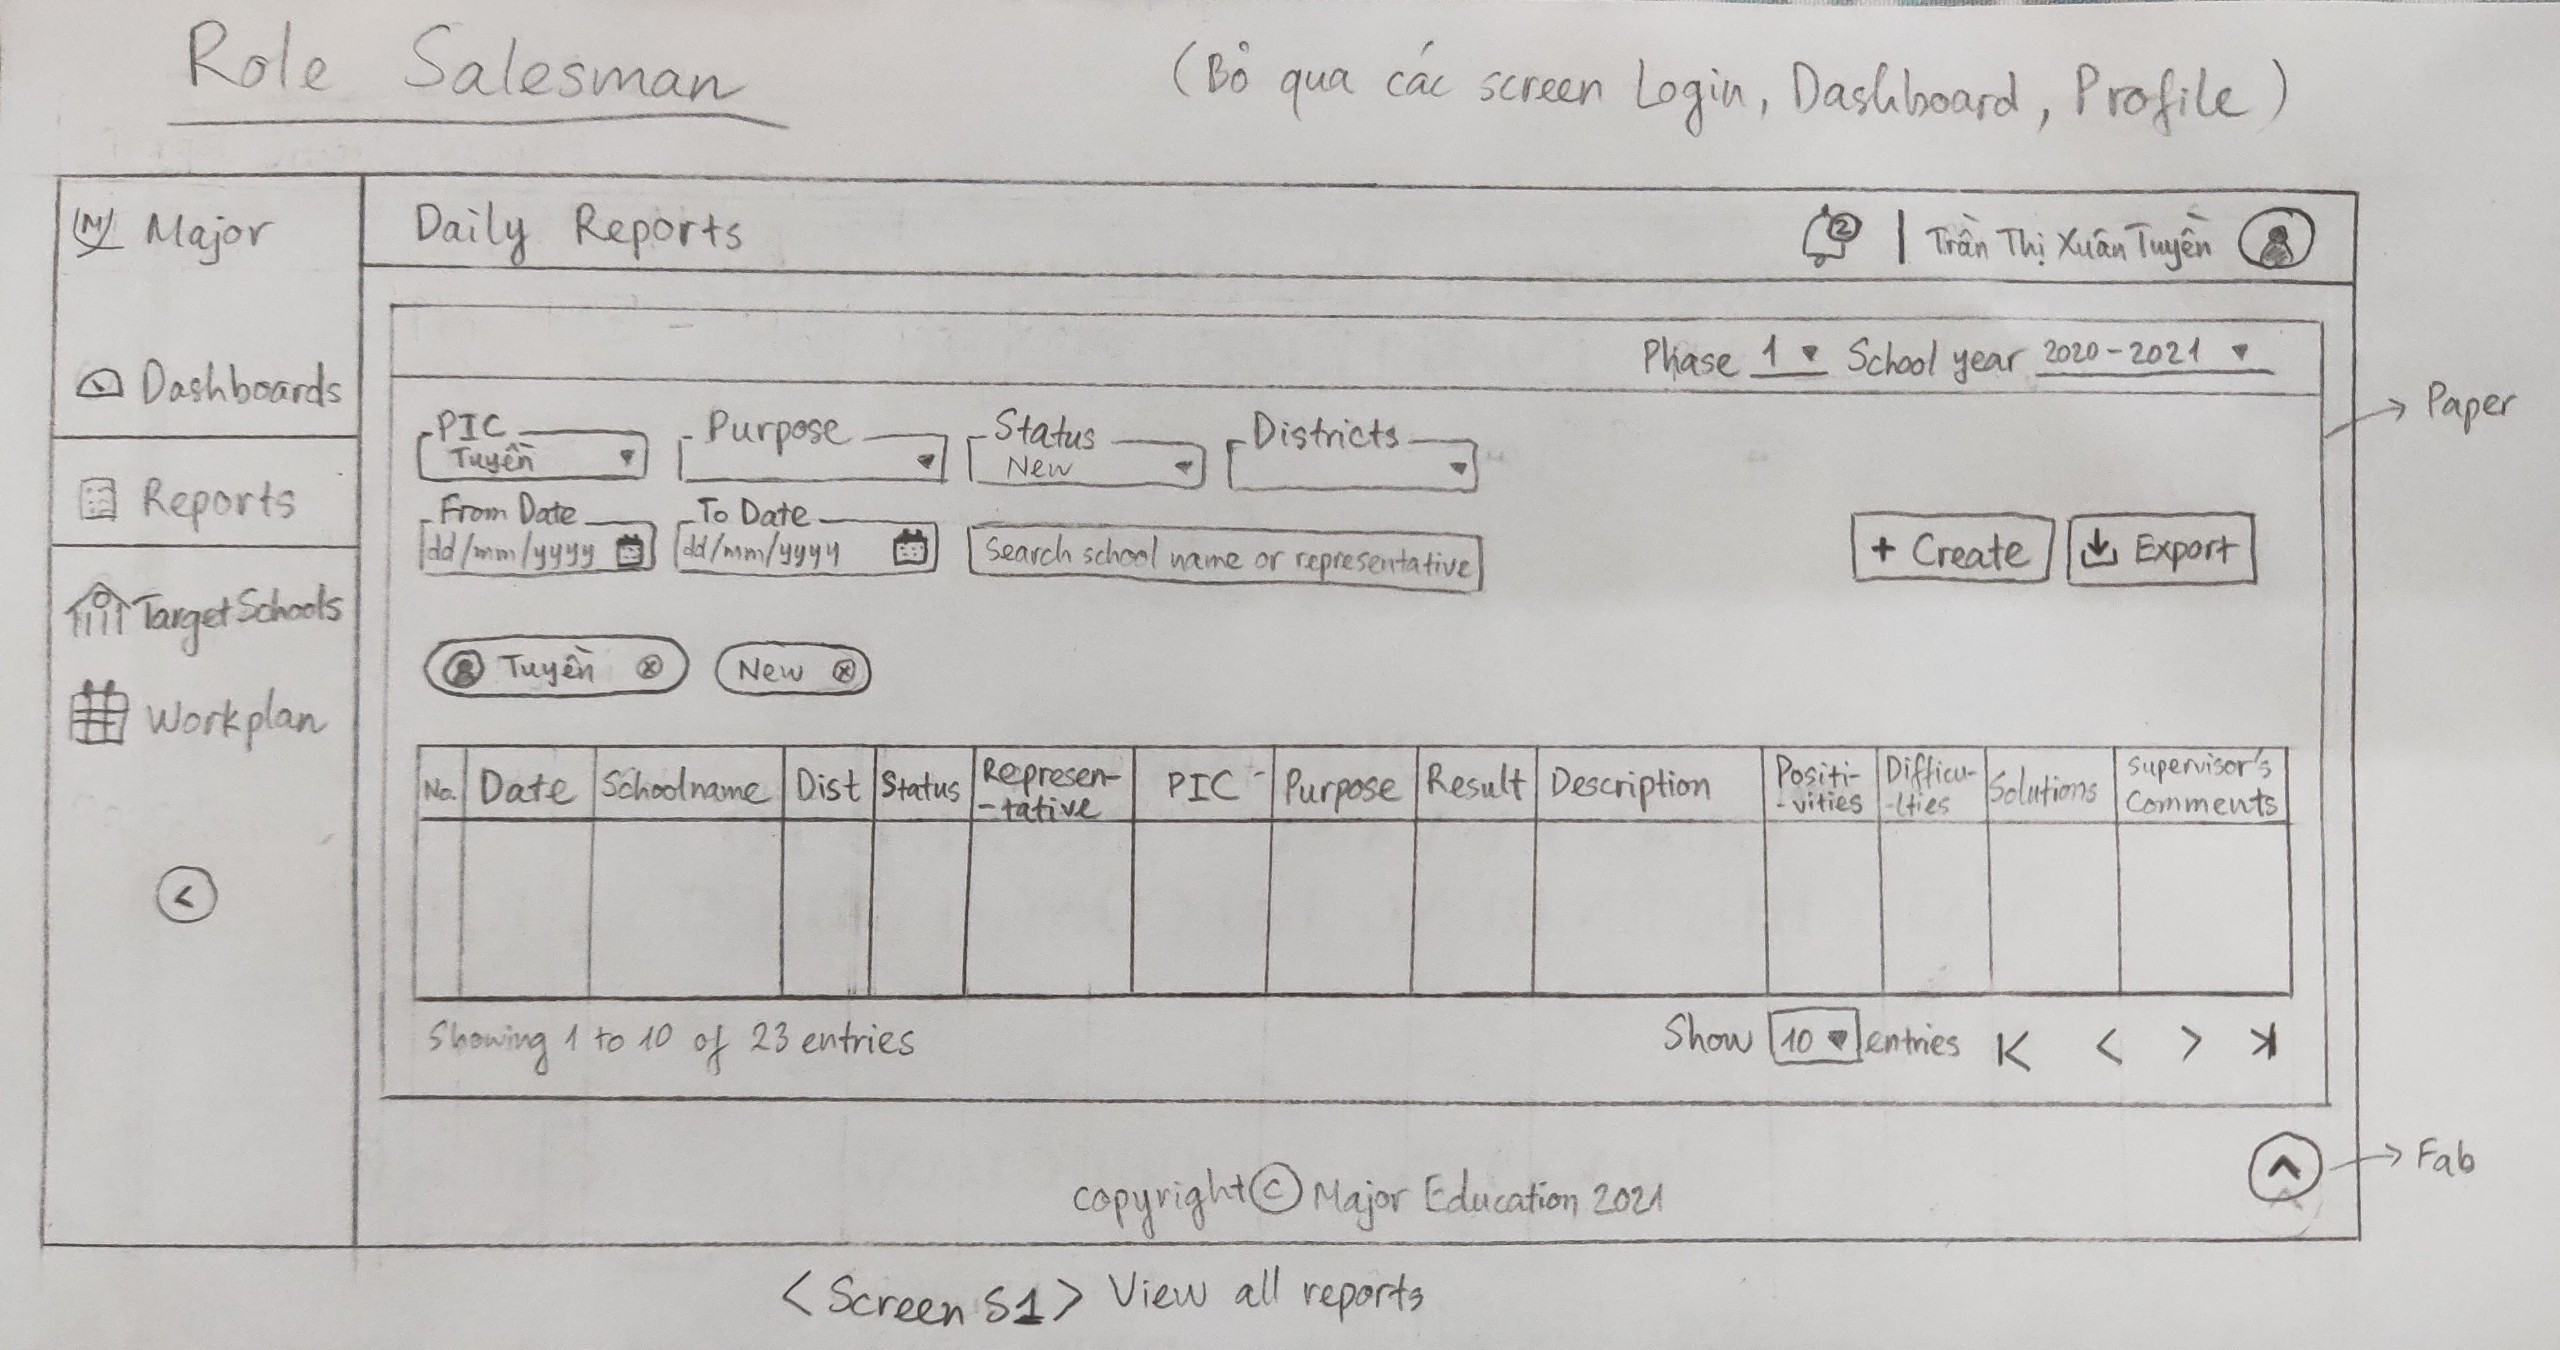 Role Salesman
(Bỏ qua các screen Login, Dashboard, Profile)
Major
Daily Reports
2
Trần Thị Xuân Tuyền
Dashboards
Reports
Target Schools
Workplan
<
Phase 1 School year 2020-2021
Paper
PIC
Tuyền
Purpose
Status
New
Districts
From Date
dd/mm/yyyy
To Date
dd/mm/yyyy
Search school name or representative
+ Create
Export
Tuyền
New
No. Date Schoolname Dist Status Represen-
-tative PIC Purpose Result Description Positi-
-vities Difficu-
-lties Solutions Supervisor's
Comments
Showing 1 to 10 of 23 entries
Show 10 entries
Fab
copyright © Major Education 2021
<Screen S1> View all reports